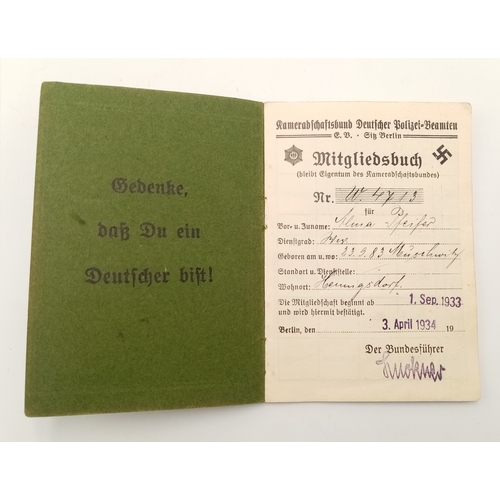 Gedenke,
daß Du ein
Deutscher bist!
Kameradschaftsbund Deutscher Polizei-Beamten
E. V. - Sitz Berlin
Mitgliedsbuch
(bleibt Eigentum des Kameradschaftsbundes)
Nr. W. 4713
für
Vor- u. Zuname: Alma Pfeifer
Dienstgrad:
Geboren am u. wo: 23.9.83
Standort u. Dienststelle:
Wohnort: Hennigsdorf.
Die Mitgliedschaft beginnt ab 1. Sep. 1933
und wird hiermit bestätigt.
Berlin, den 3. April 1934 19
Der Bundesführer